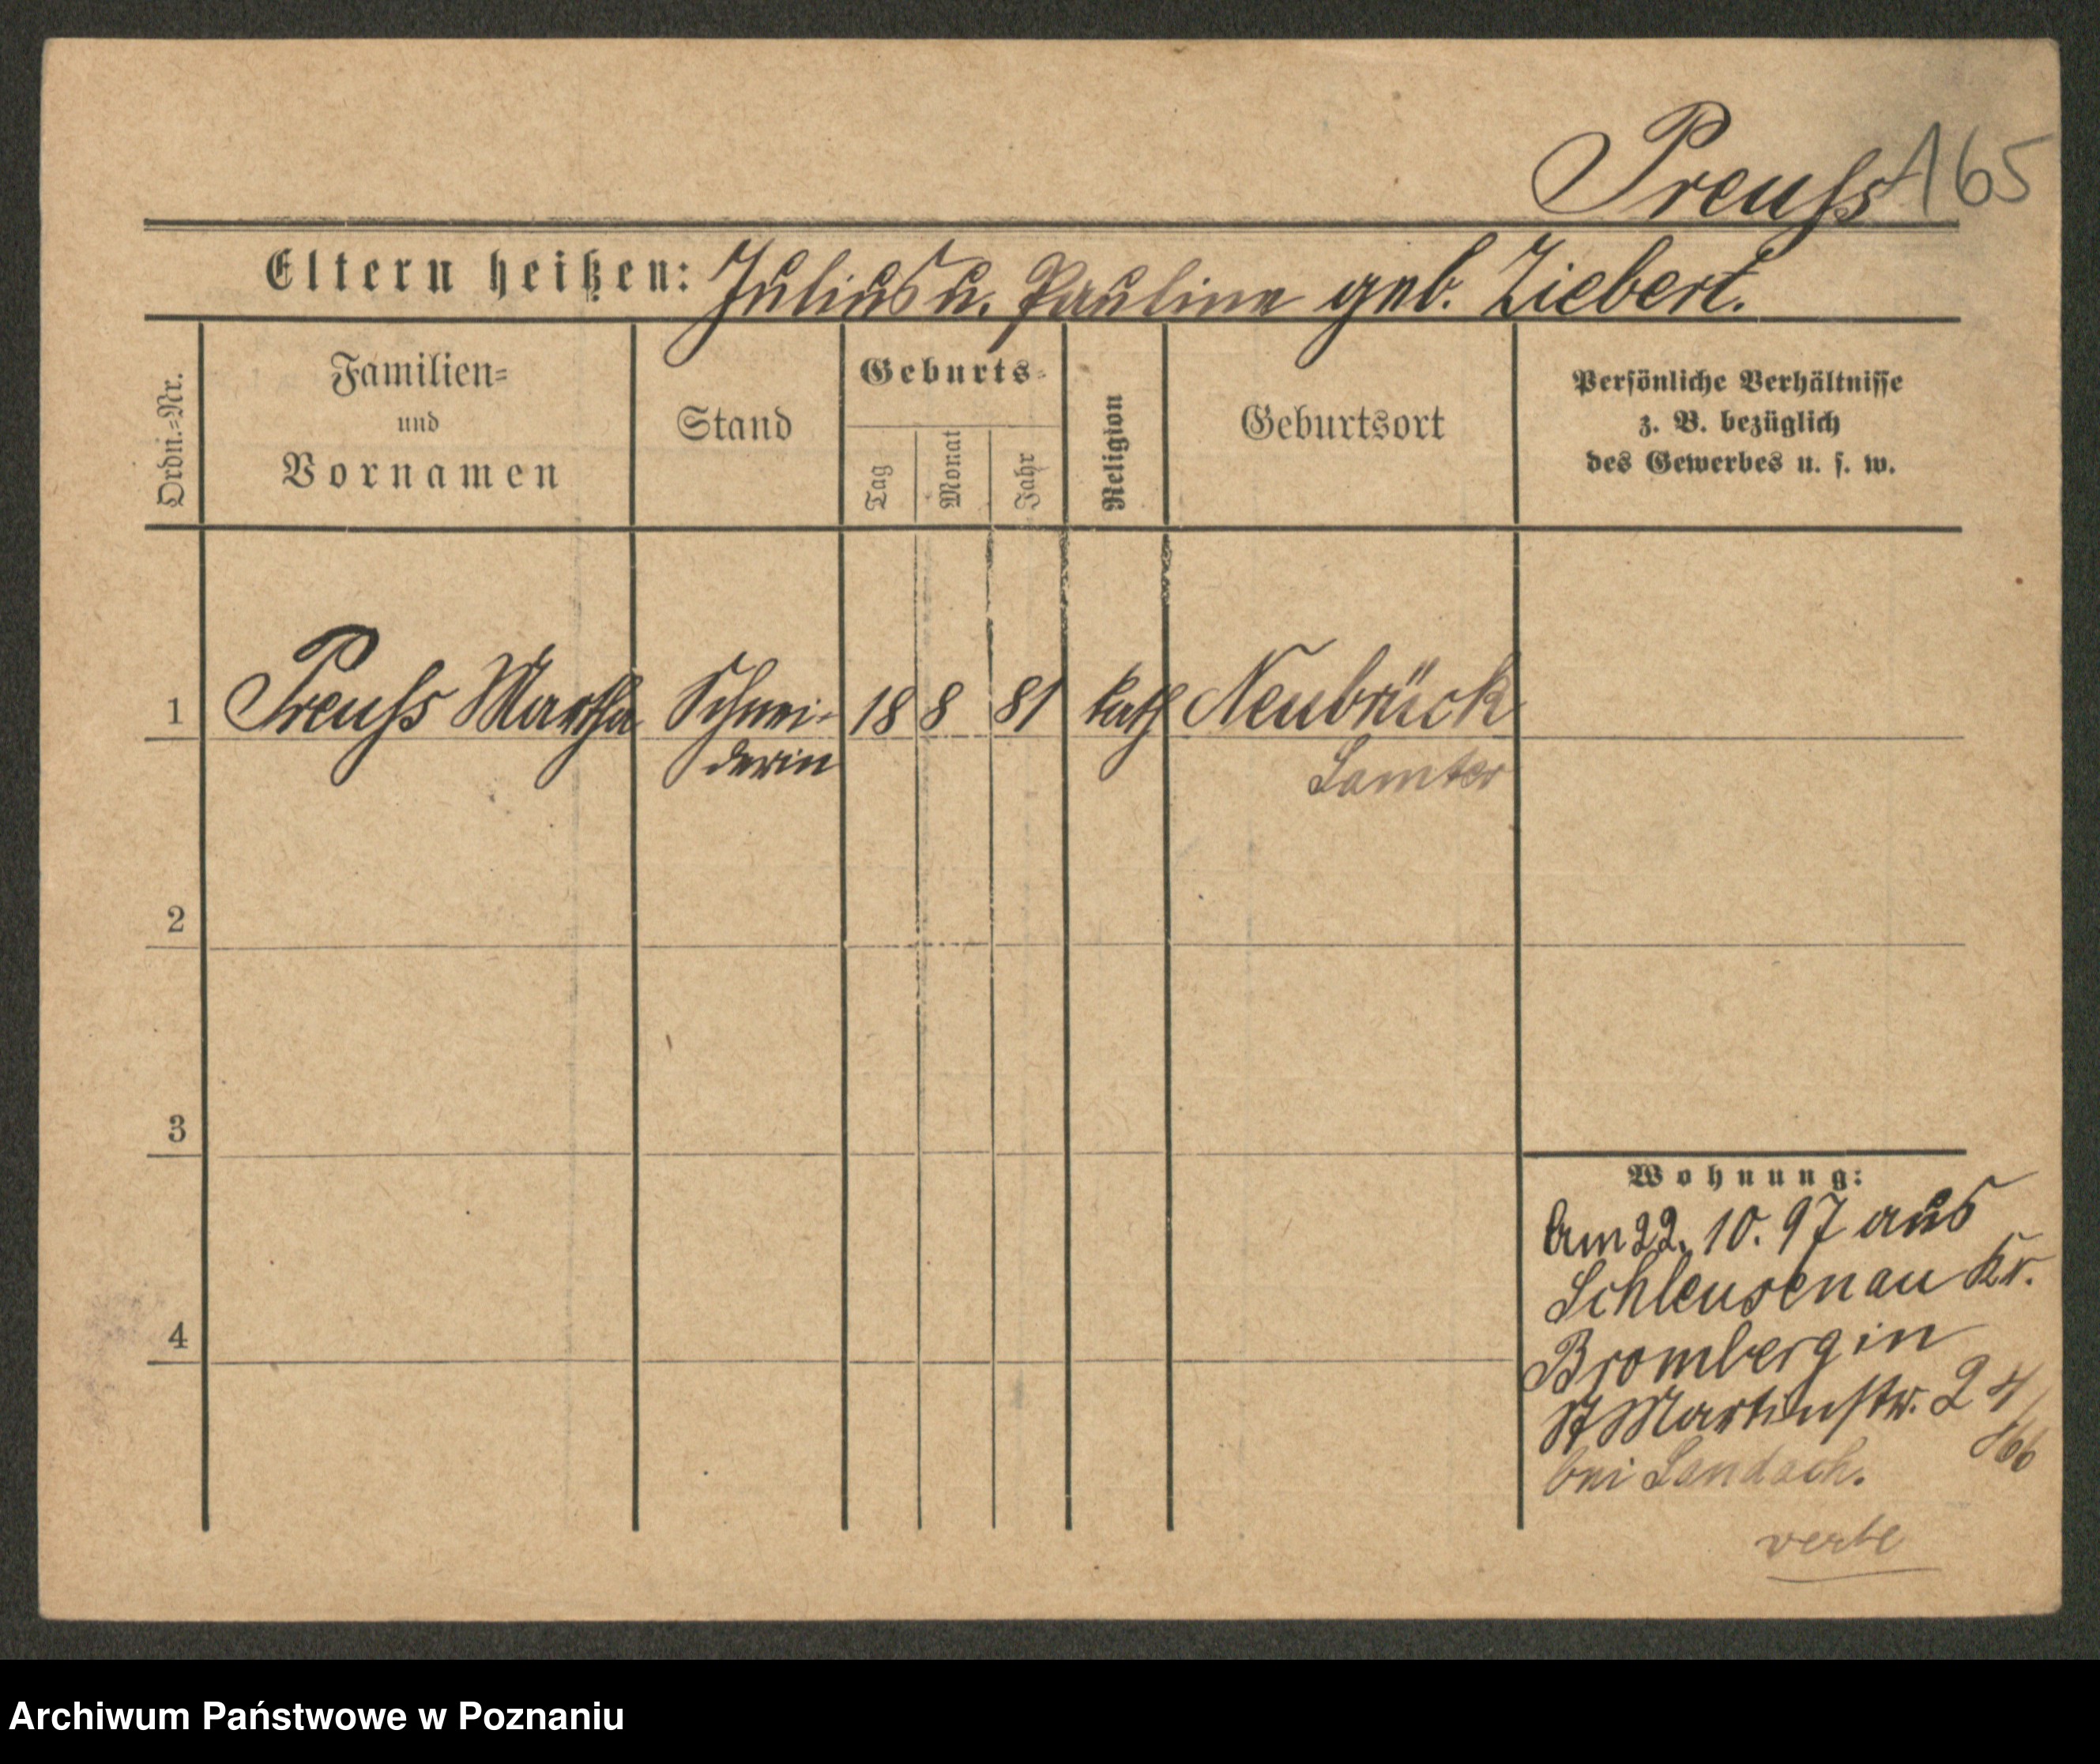 Preuſs 165
Eltern heißen: Julius u. Pauline geb. Ziebert.
Ordn.-Nr.
Familien-
und
Vornamen
Stand
Geburts-
Tag
Monat
Jahr
Religion
Geburtsort
Persönliche Verhältnisse
z. B. bezüglich
des Gewerbes u. s. w.
1 Preuſs Martha Schnei- 18 8 81 kath Neubrück
derin Samter
2
3
4
Wohnung:
Am 22. 10. 97 aus
Schleusenau Kr.
Bromberg in
St Martinstr. 24
bei
Archiwum Państwowe w Poznaniu